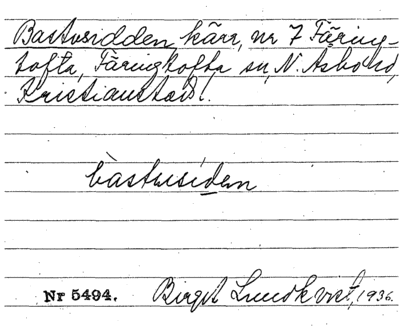 Bastusidden, kärr, nr 7 Färing-
tofta, Färingtofta sn, N. Åsbo hd,
Kristianstads l.
bàstusíden
Nr 5494. Birgit Lundkvist, 1936.